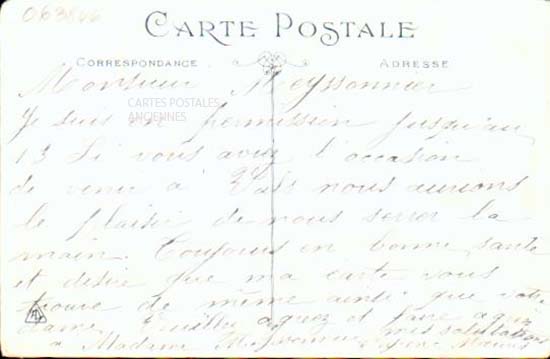 063866
CARTE POSTALE
CORRESPONDANCE ADRESSE
Monsieur Meyssonnier
CARTES POSTALES
ANCIENNES
Je suis en permission jusqu'au
13 Si vous aviez l'occasion
de venir a Vals nous aurions
le plaisir de nous serrer la
main. Toujours en bonne sante
et desire que ma carte vous
trouve de même ainsi que votre
Dame. Veuillez agréez et faire agréer
mes salutations
a Madame